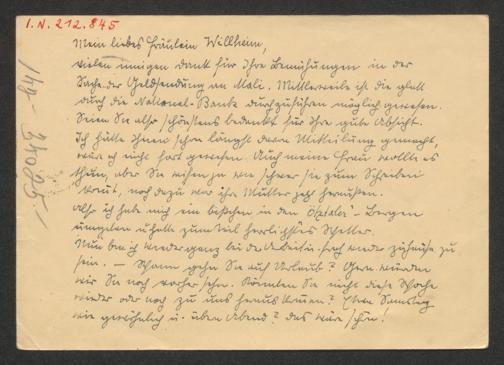 I.N. 212.845
Mein liebes Fräulein Willheim,
vielen innigen Dank für Ihre Bemühungen in der
Sache der Geldsendung an Mali. Mittlerweile ist die glatt
durch die National-Bank durchzuführen möglich gewesen.
Seien Sie also schönstens bedankt für Ihre gute Absicht.
Ich hätte Ihnen schon längst davon Mitteilung gemacht,
wäre ich nicht fort gewesen. Auch meine Frau wollte es
thun, aber Sie wissen ja wie schwer sie zum Schreiben
kommt, noch dazu wo ihre Mutter jetzt
Also ich habe mich ein bißchen in den Ötztaler-Bergen
umgeben u. hatte zum Teil herrlichstes Wetter.
Nun bin ich wieder ganz bei der Arbeit u. froh wieder zuhause zu
sein. — Wann gehn Sie auf Urlaub? Gern würden
wir Sie noch vorher sehn. Könnten Sie nicht diese Woche
wieder oder noch zu uns herauskommen? Etwa Samstag
wie gewöhnlich u. über Abend? das wäre schön!